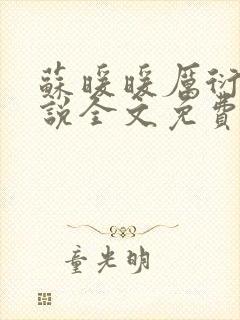 蘇暖暖厲衍
說全文免費
童光明